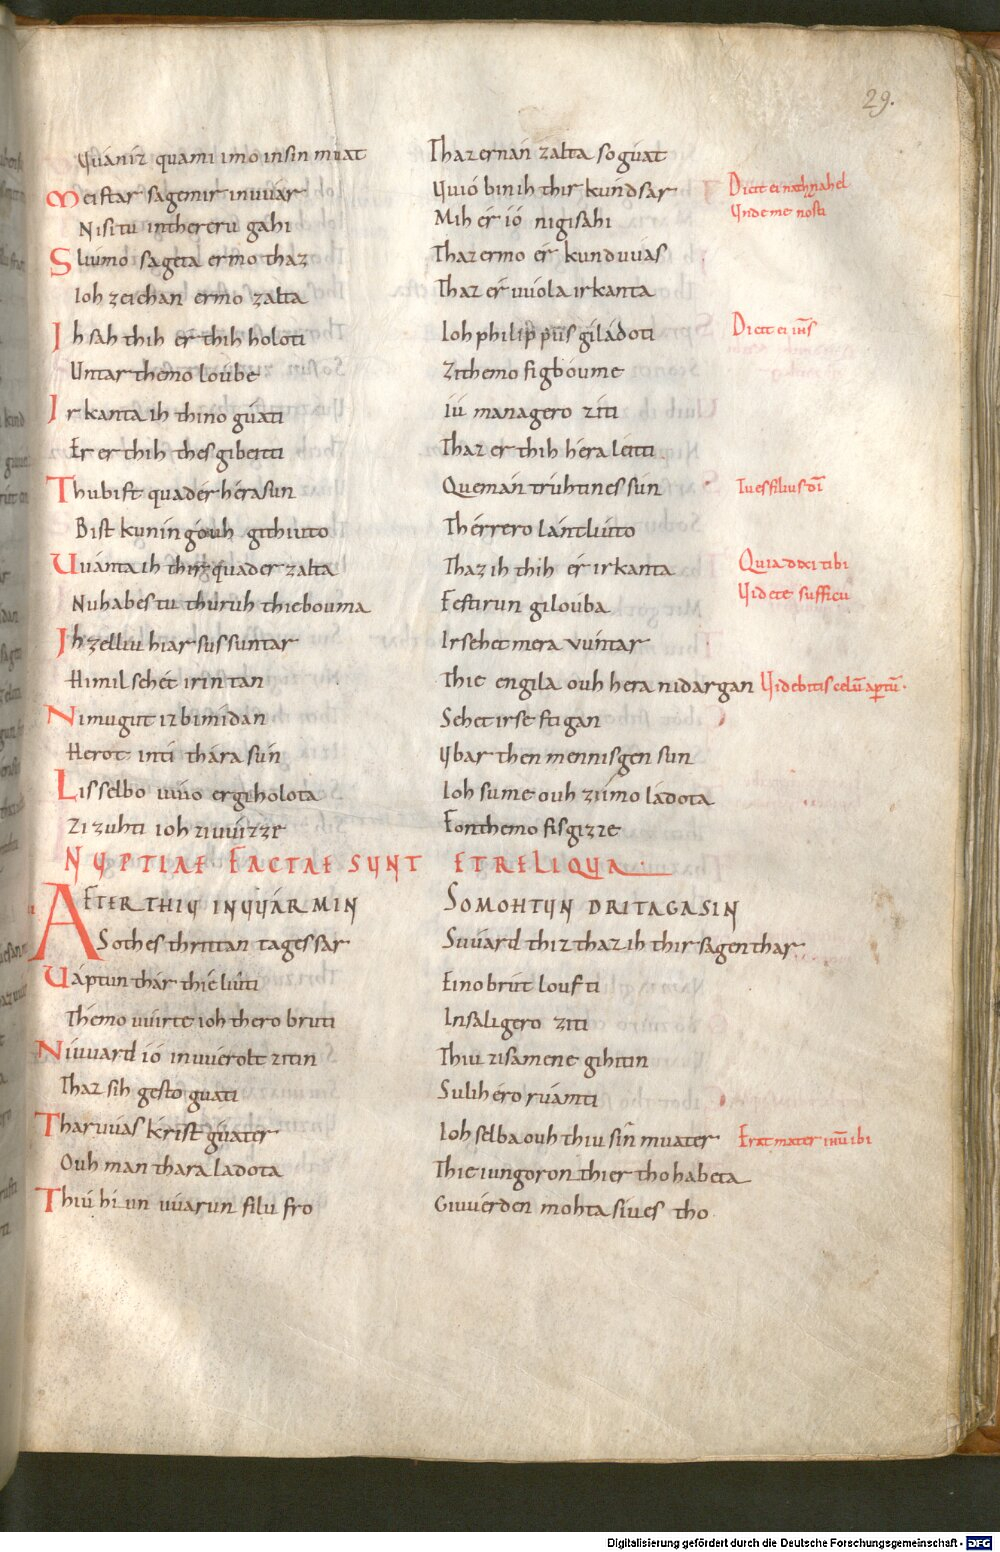 29.
Quániz quami imo insin muat Thaz ernan zalta so guat
Meistar sagemir inuuár Uuió bin ih thir kund sar Dicit ei nathnahel
Nisi tu inthereru gahi Mih ér ió nigisahi Unde me nosti
Sliumo sageta ermo thaz Thaz ermo ér kund uuas
Ioh zeichan ermo zalta Thaz ér uuola irkanta
Ih sah thih er thih holoti Ioh philippus giládoti Dicit ei ihs
Untar themo loube Zi themo figboume
Irkanta ih thino guati iu managero ziti
Er er thih thes gibeitti Thaz er thih héra leitti
Thu bist quad er hérasun Queman truhtines sun Tu es filius di
Bist kuning ouh githiuto Thérrero lántliuto
Uuánta ih thir quad er zalta Thaz ih thih ér irkanta Quia dixi tibi
Nu habes tu thuruh thie bouma Festirun gilouba Uidete sufficu
Ih zelliu hiar sus suntar Ir sehet mera vuntar
Himil sehét irin tan Thie engila ouh hera nidargan Uidebitis celu aptu.
Nimugut iz bimidan Sehet ir se stigan
Herot inti thára sún Ubar then mennisgen sun
Lis selbo uuio er giholota Ioh sume ouh zi imo ládota
Zi zuhti ioh ziuuizze Fon themo fisgizze
NUPTIAE FACTAE SUNT ET RELIQUA
AFTER THIU INUUAR MIN SO MOHTUN DRI TAGA SIN
So thes thrittan tages sar Suuárd thiz thaz ih thir sagen thar
Uáptun thár thie liuti Eino brut loufti
Themo uuirte ioh thero bruti In saligero ziti
Niuuard ió inuuerolt zitin Thiu zisamene gihitin
Thaz sih gesto guati Sulih ero ruamti
Thar uuas Krist guater Ioh selba ouh thiu sin muater Erat mater ihu ibi
Ouh man thara ladota Thie iungoron thie er tho habeta
Thiu hi un uuarun filu fro Giuuérden mohta si ués tho
Digitalisierung gefördert durch die Deutsche Forschungsgemeinschaft - DFG